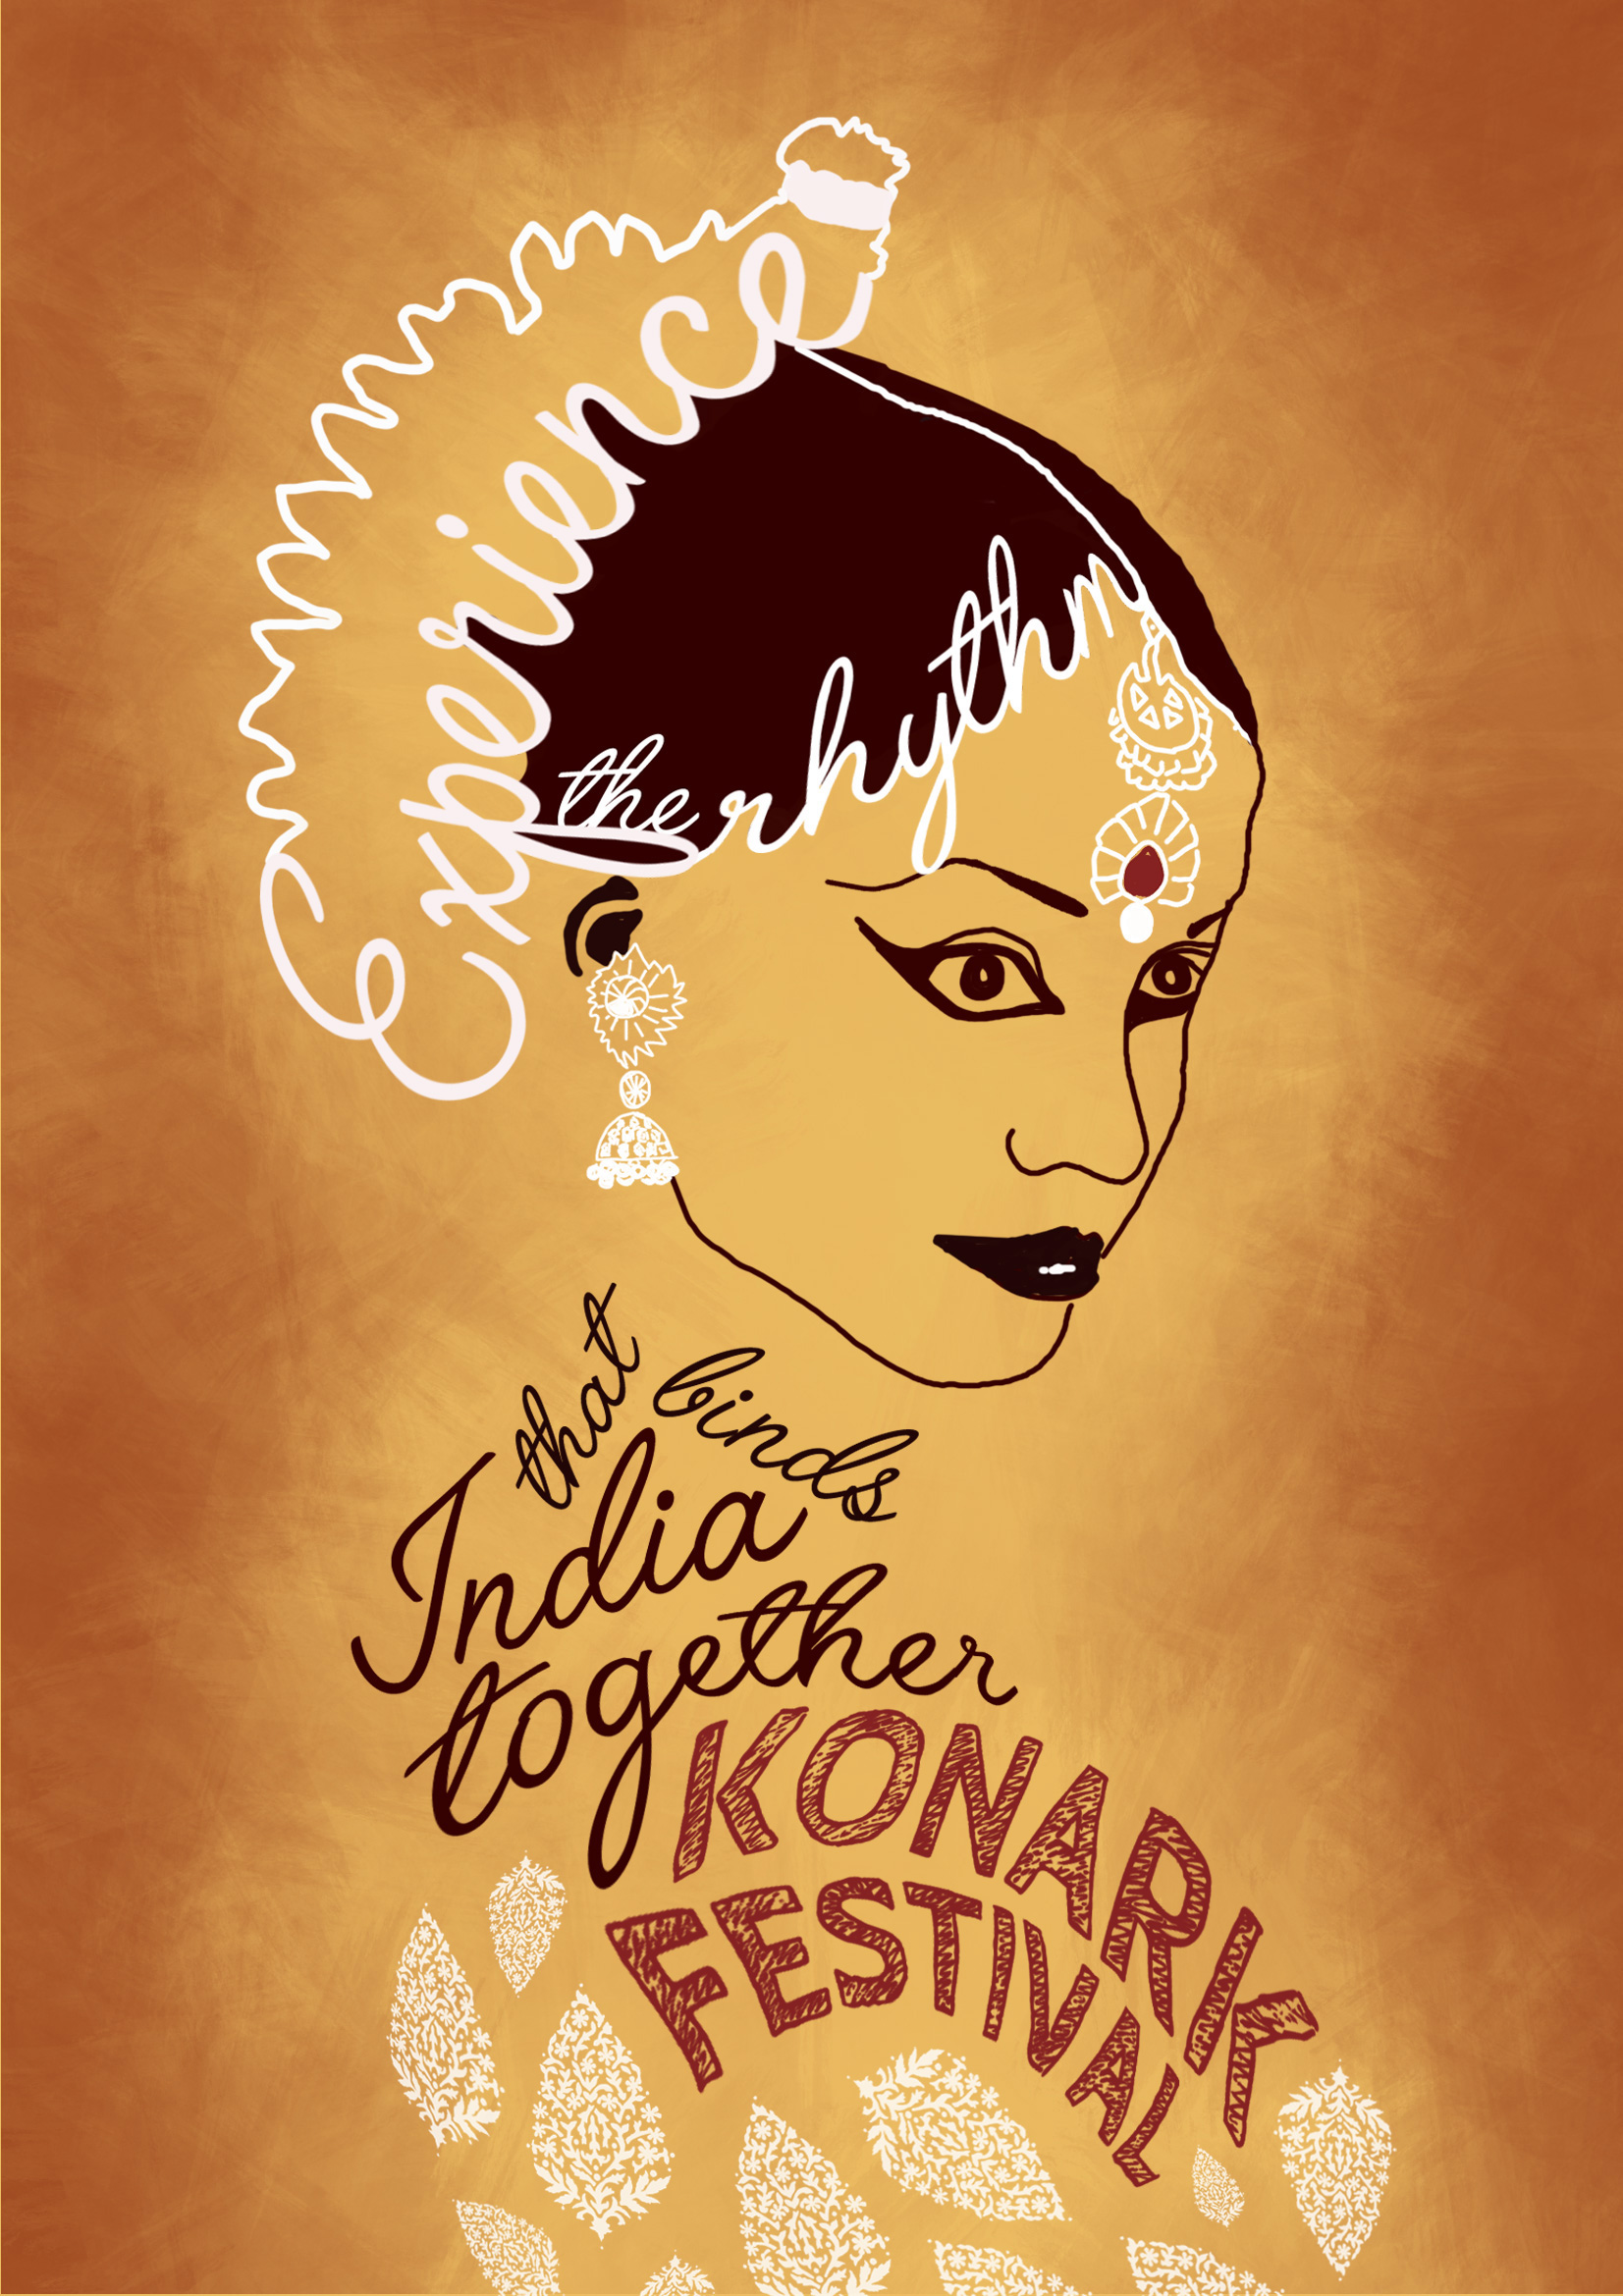 Experience
the rhythm
that binds
India
together
KONARK
FESTIVAL